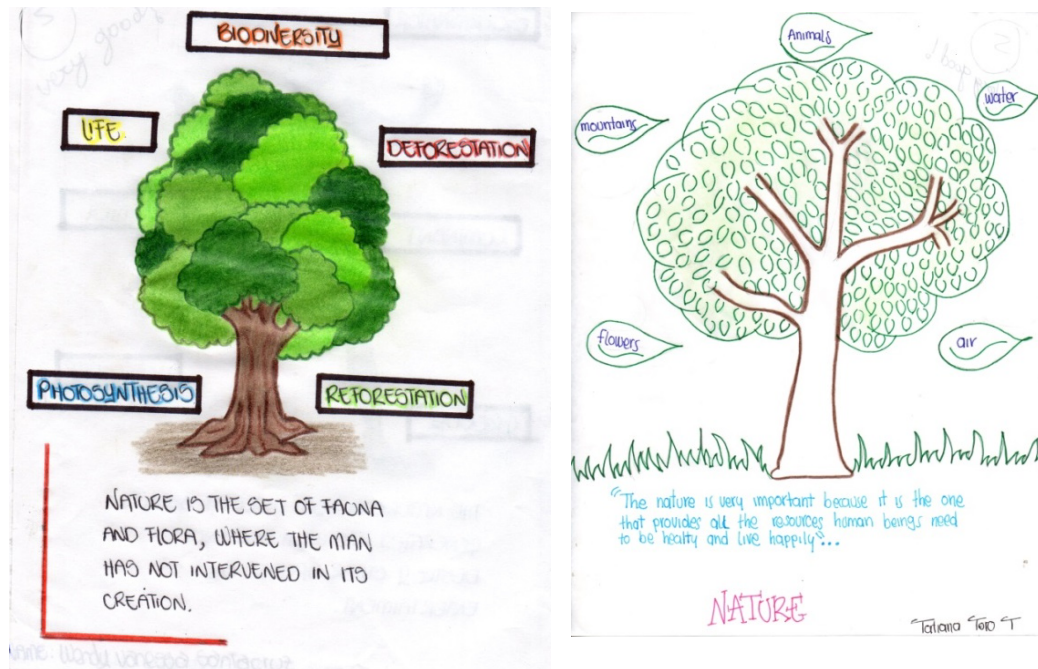 5
very good
BIODIVERSITY
LIFE.
DEFORESTATION
PHOTOSYNTHESIS
REFORESTATION
NATURE IS THE SET OF FAUNA
AND FLORA, WHERE THE MAN
HAS NOT INTERVENED IN ITS
CREATION.
5
Animals
water
mountains
flowers
air
"The nature is very important because it is the one
that provides all the resources human beings need
to be healty and live happily"...
NATURE
Tatiana Toro T